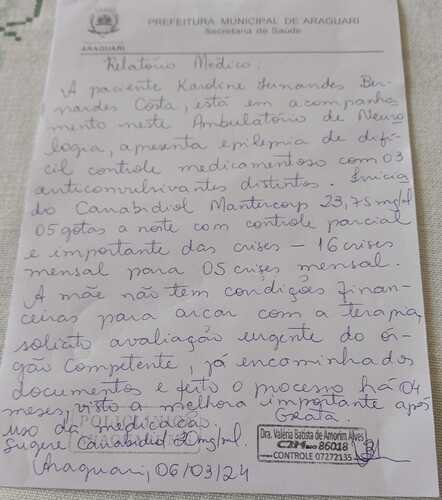 PREFEITURA MUNICIPAL DE ARAGUARI
Secretaria de Saúde
ARAGUARI
Relatório Médico:
A paciente Karoline Fernandes Ber-
nardes Costa, está em acompanha
mento neste Ambulatório de Neuro
logia, apresenta epilepsia de difí-
cil controle medicamentoso com 03
anticonvulsivantes distintos. Inicia
do Canabidiol Mantecorp 23,75 mg/ml
05 gotas a noite com controle parcial
e importante das crises - 16 crises
mensal para 05 crises mensal.
A mãe não tem condições finan-
ceiras para arcar com a terapia,
solicito avaliação urgente do ór-
gão competente, já encaminhados
documentos e feito o processo há 04
meses, visto a melhora importante após
uso da medicação. Grata.
Sugere Canabidiol 20mg/ml.
Araguari, 06/03/24
Dra. Valéria Batista de Amorim Alves
CRM 86018
CONTROLE 07272135